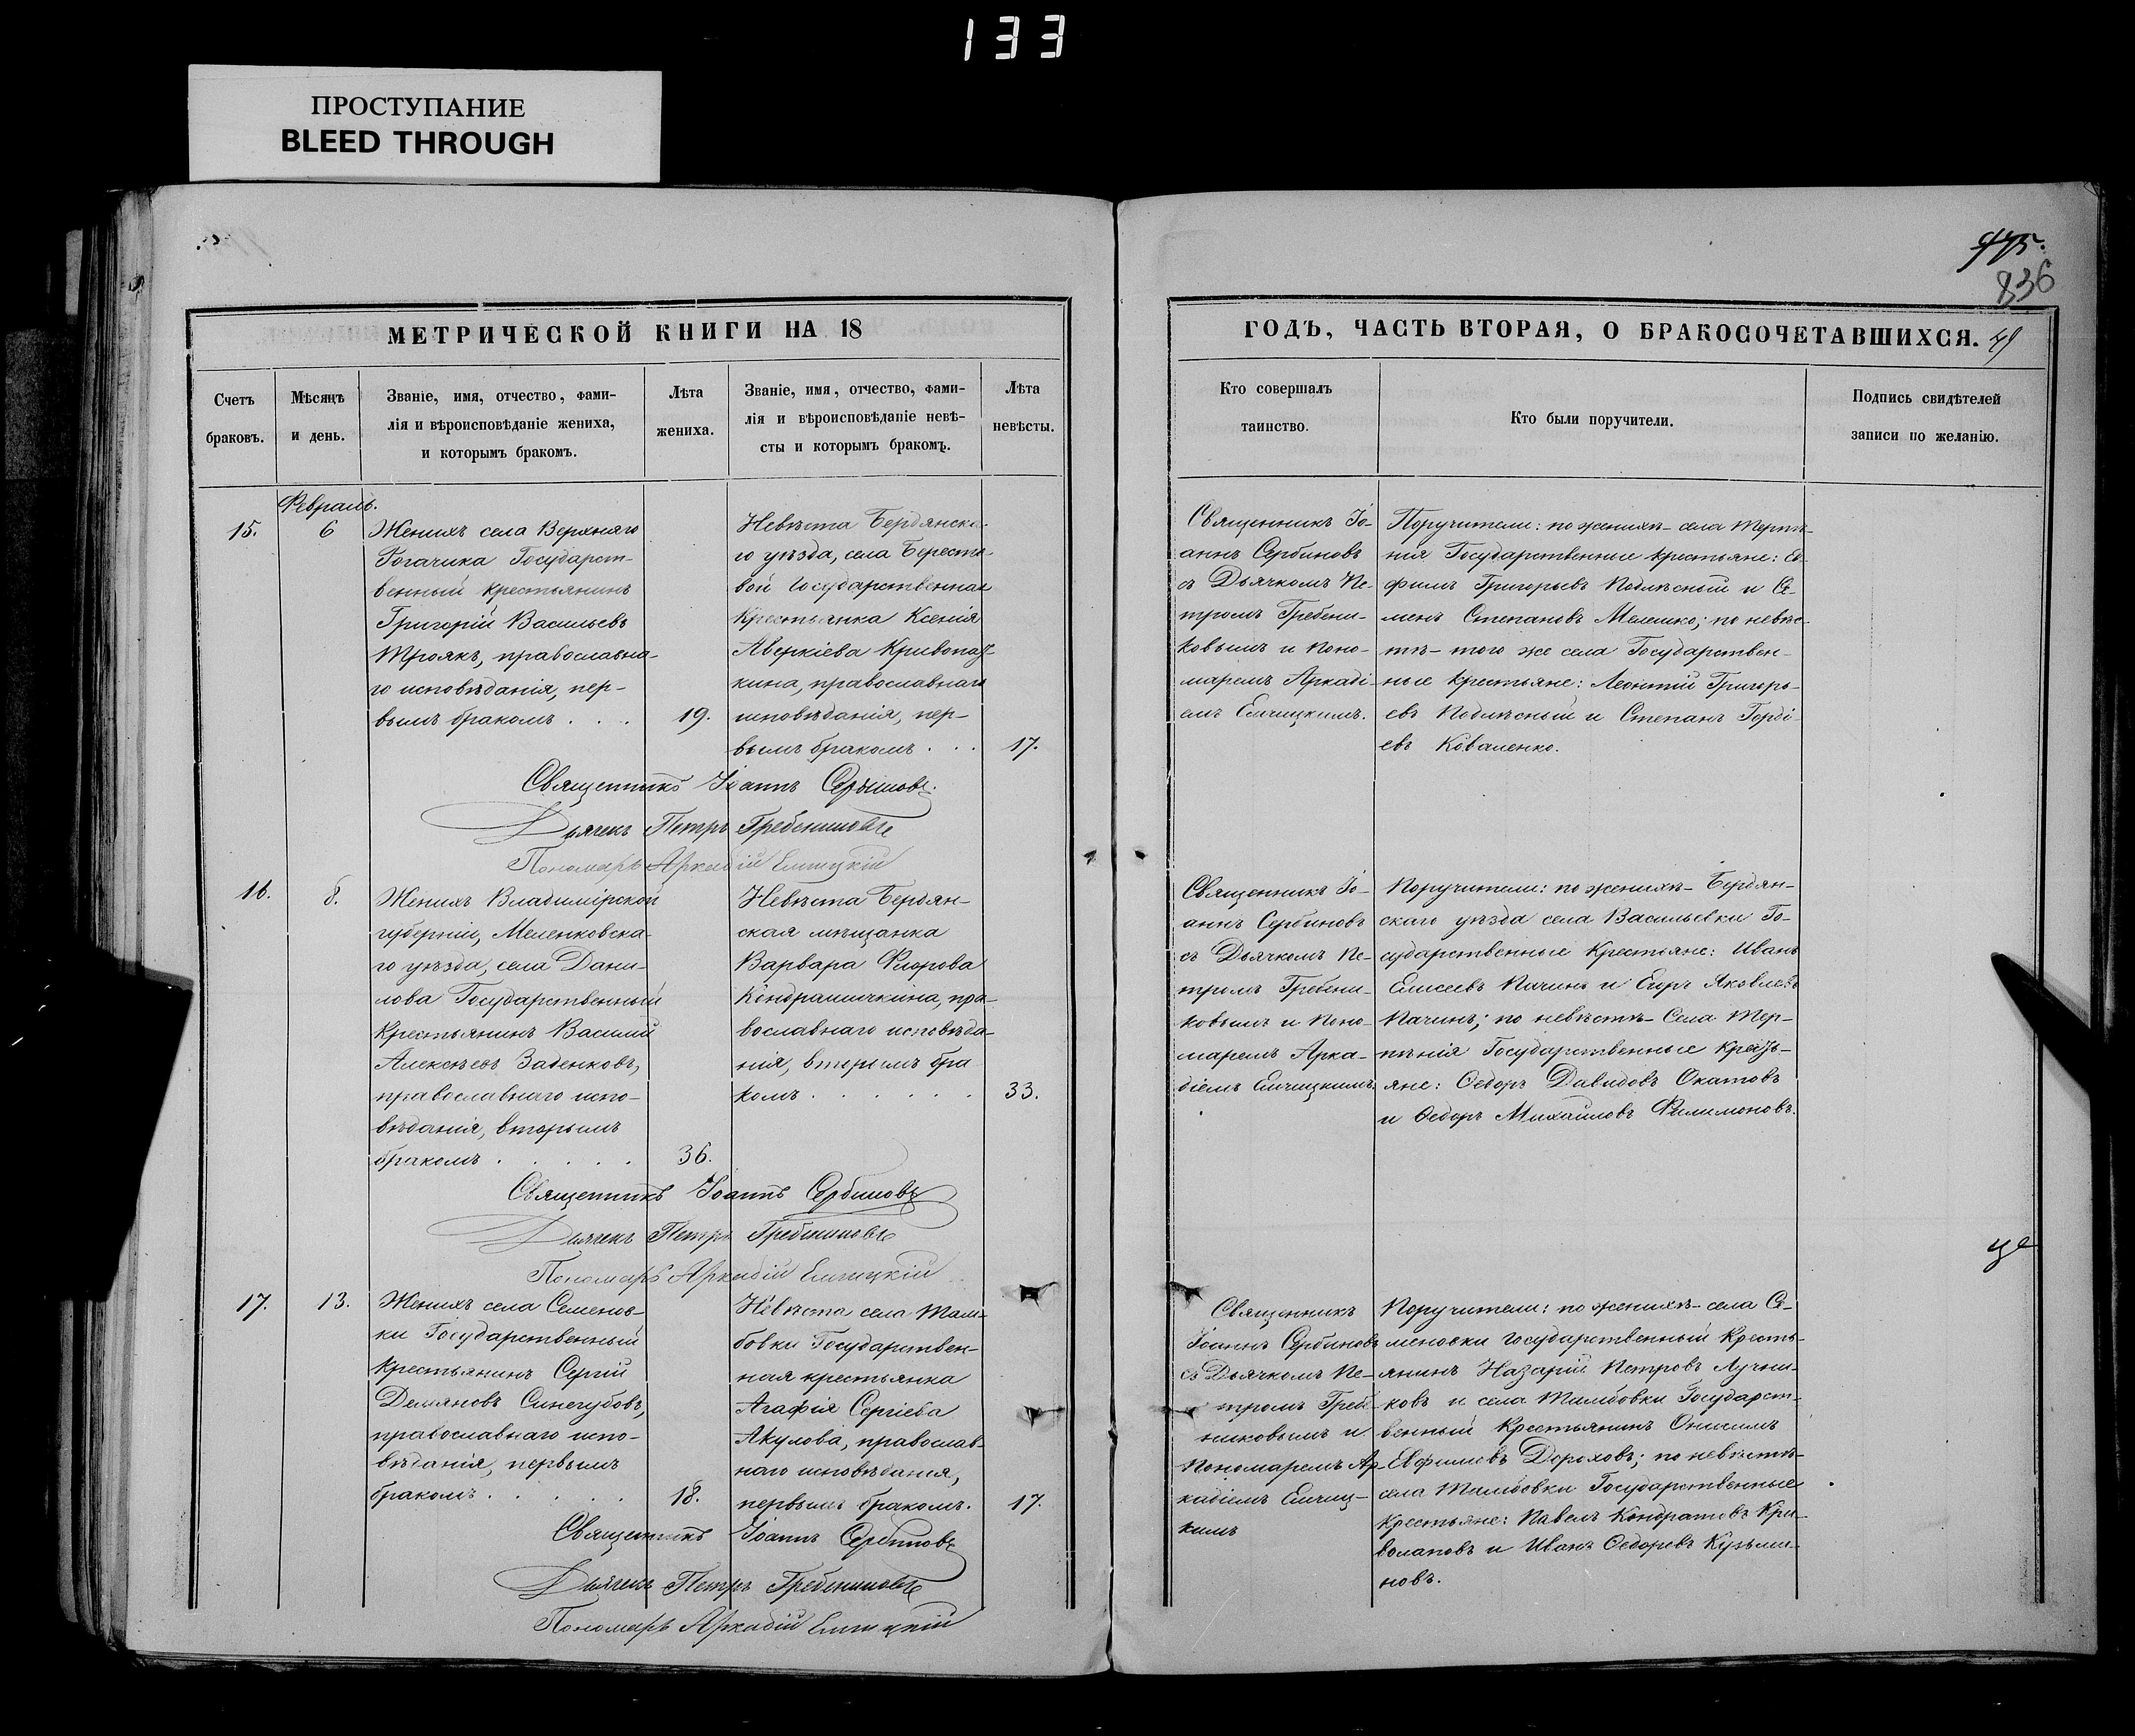 133
ПРОСТУПАНИЕ
BLEED THROUGH
836
МЕТРИЧЕСКОЙ КНИГИ НА 18
Счетъ
браковъ.
Мѣсяцъ
и день.
Званіе, имя, отчество, фами-
лія и вѣроисповѣданіе жениха,
и которымъ бракомъ.
Лѣта
жениха.
Званіе, имя, отчество, фами-
лія и вѣроисповѣданіе невѣ-
сты и которымъ бракомъ.
Лѣта
невѣсты.
ГОДЪ, ЧАСТЬ ВТОРАЯ, О БРАКОСОЧЕТАВШИХСЯ.
Кто совершалъ
таинство.
Кто были поручители.
Подпись свидѣтелей
записи по желанію.
Февраль.
15.
6
Женихъ села Верхняго
Рогачика Государст-
венный крестьянинъ
Григорій Васильевъ
Троякъ, православна-
го исповѣданія, пер-
вымъ бракомъ . . .
19.
Невѣста Бердянска-
го уѣзда, села Бересто-
вой Государственная
Крестьянка Ксенія
Аверкіева
кина, православнаго
исповѣданія, пер-
вымъ бракомъ . . .
17.
Священникъ Іо-
аннъ Сербиновъ
съ Дьячкомъ Пе-
тромъ Гребени-
ковымъ и Поно-
маремъ Аркаді-
емъ Елчицкимъ.
Поручители: по женихѣ - села Терпѣ-
нія Государственные крестьяне: Ев-
фимъ Григорьевъ Подлѣсный и Се-
менъ Степановъ Мелешко; по невѣс-
тѣ - того же села Государствен-
ные крестьяне: Леонтій Григорь-
евъ Подлѣсный и Степанъ Горді-
евъ Коваленко.
Священникъ Іоаннъ Сербиновъ.
Дьячекъ Петръ Гребениковъ
Пономарь Аркадій Елчицкій
16.
8.
Женихъ Владимірской
губерніи, Меленковска-
го уѣзда, села Дани-
лова Государственный
Крестьянинъ Василій
Алексѣевъ Заденковъ,
православнаго испо-
вѣданія, вторымъ
бракомъ . . . . .
36.
Невѣста Бердян-
ская мѣщанка
Варвара Флорова
Кондрашичкина, пра-
вославнаго исповѣда-
нія, вторымъ бра-
комъ . . . . . .
33.
Священникъ Іо-
аннъ Сербиновъ
съ Дьячкомъ Пе-
тромъ Гребени-
ковымъ и Поно-
маремъ Арка-
діемъ Елчицкимъ.
Поручители: по женихѣ - Бердян-
скаго уѣзда села Васильевки Го-
сударственные Крестьяне: Иванъ
Елисеевъ Пачинъ и Егоръ Яковлевъ
Пачинъ; по невѣстѣ - села Тер-
пѣнія Государственные Кресть-
яне: Ѳедоръ Давидовъ Окатовъ
и Ѳедоръ Михайловъ Филимоновъ.
Священникъ Іоаннъ Сербиновъ
Дьячекъ Петръ Гребениковъ
Пономарь Аркадій Елчицкій
17.
13.
Женихъ села Семенов-
ки Государственный
крестьянинъ Сергій
Демяновъ Синегубовъ,
православнаго испо-
вѣданія, первымъ
бракомъ . . . . .
18.
Невѣста села Там-
бовки Государствен-
ная крестьянка
Агафія Сергіева
Акулова, православ-
наго исповѣданія,
первымъ бракомъ.
17.
Священникъ
Іоаннъ Сербиновъ
съ Дьячкомъ Пе-
тромъ Гребе-
никовымъ и
Пономаремъ Ар-
кадіемъ Елчиц-
кимъ
Поручители: по женихѣ - села Се-
меновки Государственный Кресть-
янинъ Назарій Петровъ Лучни-
ковъ и села Тамбовки Государст-
венный Крестьянинъ Онисимъ
Евфимовъ Дороховъ; по невѣстѣ -
села Тамбовки Государственные
Крестьяне: Павелъ Кондратовъ Кри-
волаповъ и Иванъ Ѳедоровъ Кузьми-
новъ.
Священникъ Іоаннъ Сербиновъ
Дьячекъ Петръ Гребениковъ
Пономарь Аркадій Елчицкій